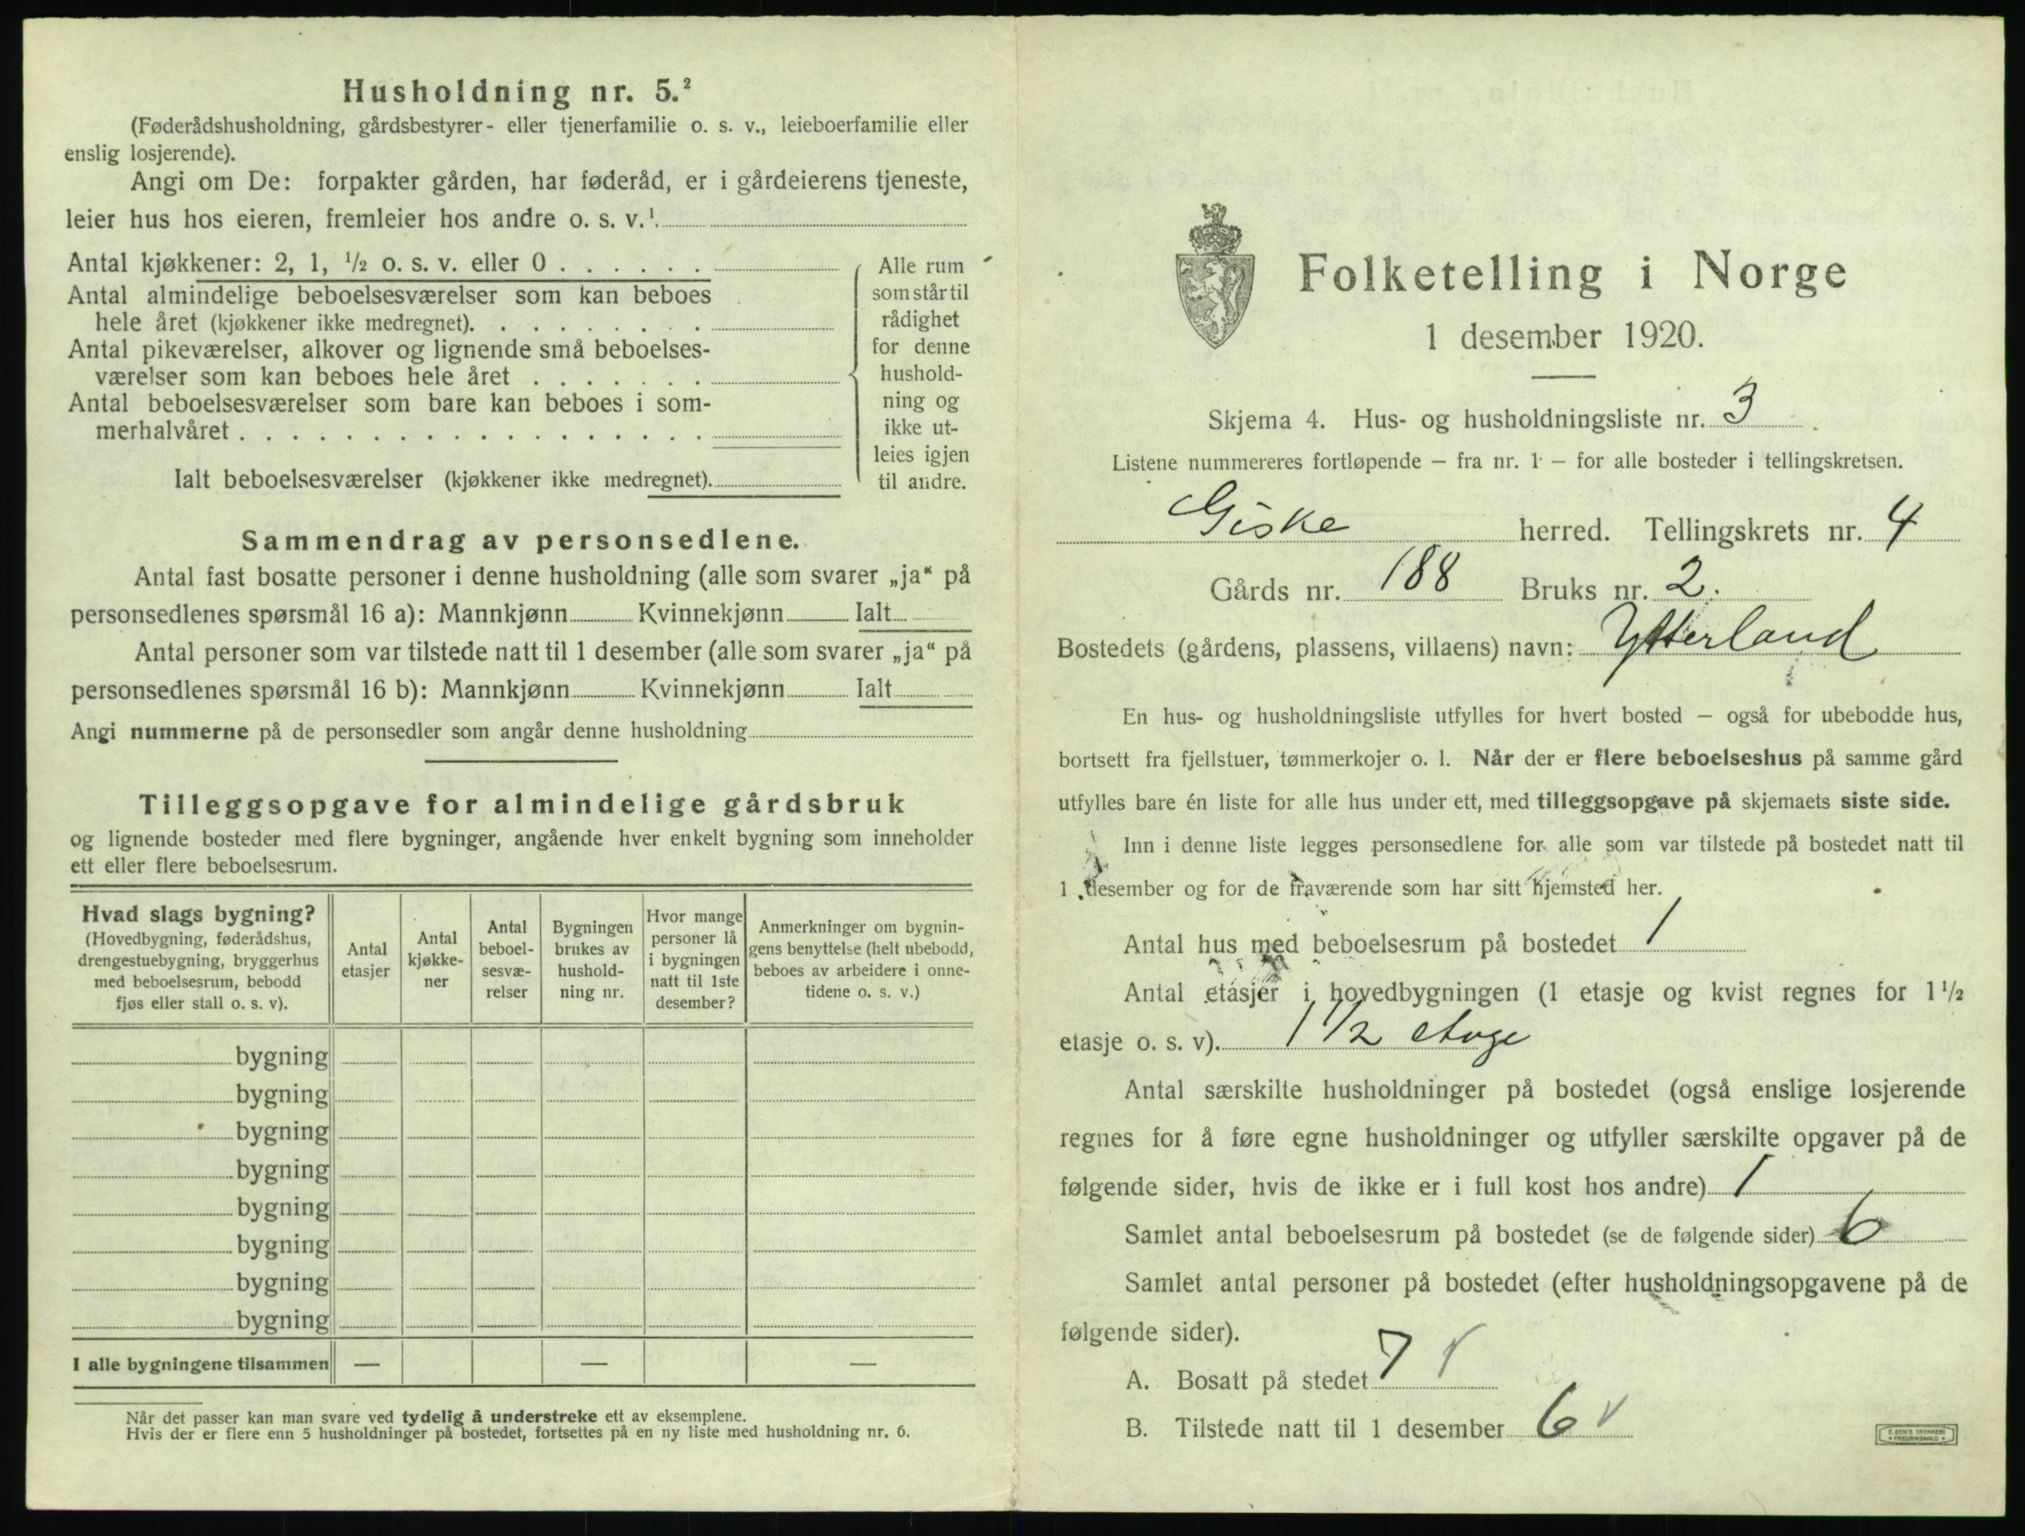 Husholdning nr. 5.²
(Føderådshusholdning, gårdsbestyrer- eller tjenerfamilie o. s. v., leieboerfamilie eller
enslig losjerende).
Angi om De: forpakter gården, har føderåd, er i gårdeierens tjeneste,
leier hus hos eieren, fremleier hos andre o. s. v.¹
Antal kjøkkener: 2, 1, ½ o. s. v. eller 0 . . . . . .
Antal almindelige beboelsesværelser som kan beboes
hele året (kjøkkener ikke medregnet). . . . . . . . .
Antal pikeværelser, alkover og lignende små beboelses-
værelser som kan beboes hele året . . . . . . .
Antal beboelsesværelser som bare kan beboes i som-
merhalvåret . . . . . . . . . . . . . . . . . .
Ialt beboelsesværelser (kjøkkener ikke medregnet).
Alle rum
som står til
rådighet
for denne
hushold-
ning og
ikke ut-
leies igjen
til andre.
Sammendrag av personsedlene.
Antal fast bosatte personer i denne husholdning (alle som svarer „ja“ på
personsedlenes spørsmål 16 a): Mannkjønn Kvinnekjønn Ialt
Antal personer som var tilstede natt til 1 desember (alle som svarer „ja“ på
personsedlenes spørsmål 16 b): Mannkjønn Kvinnekjønn Ialt
Angi nummerne på de personsedler som angår denne husholdning
Tilleggsopgave for almindelige gårdsbruk
og lignende bosteder med flere bygninger, angående hver enkelt bygning som inneholder
ett eller flere beboelsesrum.
Hvad slags bygning?
(Hovedbygning, føderådshus,
drengestuebygning, bryggerhus
med beboelsesrum, bebodd
fjøs eller stall o. s. v).
Antal
etasjer
Antal
kjøkke-
ner
Antal
beboel-
sesvæ-
relser
Bygningen
brukes av
hushold-
ning nr.
Hvor mange
personer lå
i bygningen
natt til 1ste
desember?
Anmerkninger om bygnin-
gens benyttelse (helt ubebodd,
beboes av arbeidere i onne-
tidene o. s. v.)
bygning
bygning
bygning
bygning
bygning
bygning
bygning
bygning
I alle bygningene tilsammen — — —
Når det passer kan man svare ved tydelig å understreke ett av eksemplene.
Hvis der er flere enn 5 husholdninger på bostedet, fortsettes på en ny liste med husholdning nr. 6.
Folketelling i Norge
1 desember 1920.
Skjema 4. Hus- og husholdningsliste nr. 3
Listene nummereres fortløpende — fra nr. 1 — for alle bosteder i tellingskretsen.
Giske herred. Tellingskrets nr. 4
Gårds nr. 188 Bruks nr. 2.
Bostedets (gårdens, plassens, villaens) navn: Ytterland
En hus- og husholdningsliste utfylles for hvert bosted — også for ubebodde hus,
bortsett fra fjellstuer, tømmerkojer o. l. Når der er flere beboelseshus på samme gård
utfylles bare én liste for alle hus under ett, med tilleggsopgave på skjemaets siste side.
Inn i denne liste legges personsedlene for alle som var tilstede på bostedet natt til
1 desember og for de fraværende som har sitt hjemsted her.
Antal hus med beboelsesrum på bostedet 1
Antal etasjer i hovedbygningen (1 etasje og kvist regnes for 1½
etasje o. s. v). 1 1/2 etage
Antal særskilte husholdninger på bostedet (også enslige losjerende
regnes for å føre egne husholdninger og utfyller særskilte opgaver på de
følgende sider, hvis de ikke er i full kost hos andre) 1
Samlet antal beboelsesrum på bostedet (se de følgende sider) 6
Samlet antal personer på bostedet (efter husholdningsopgavene på de
følgende sider).
A. Bosatt på stedet 7
B. Tilstede natt til 1 desember 6